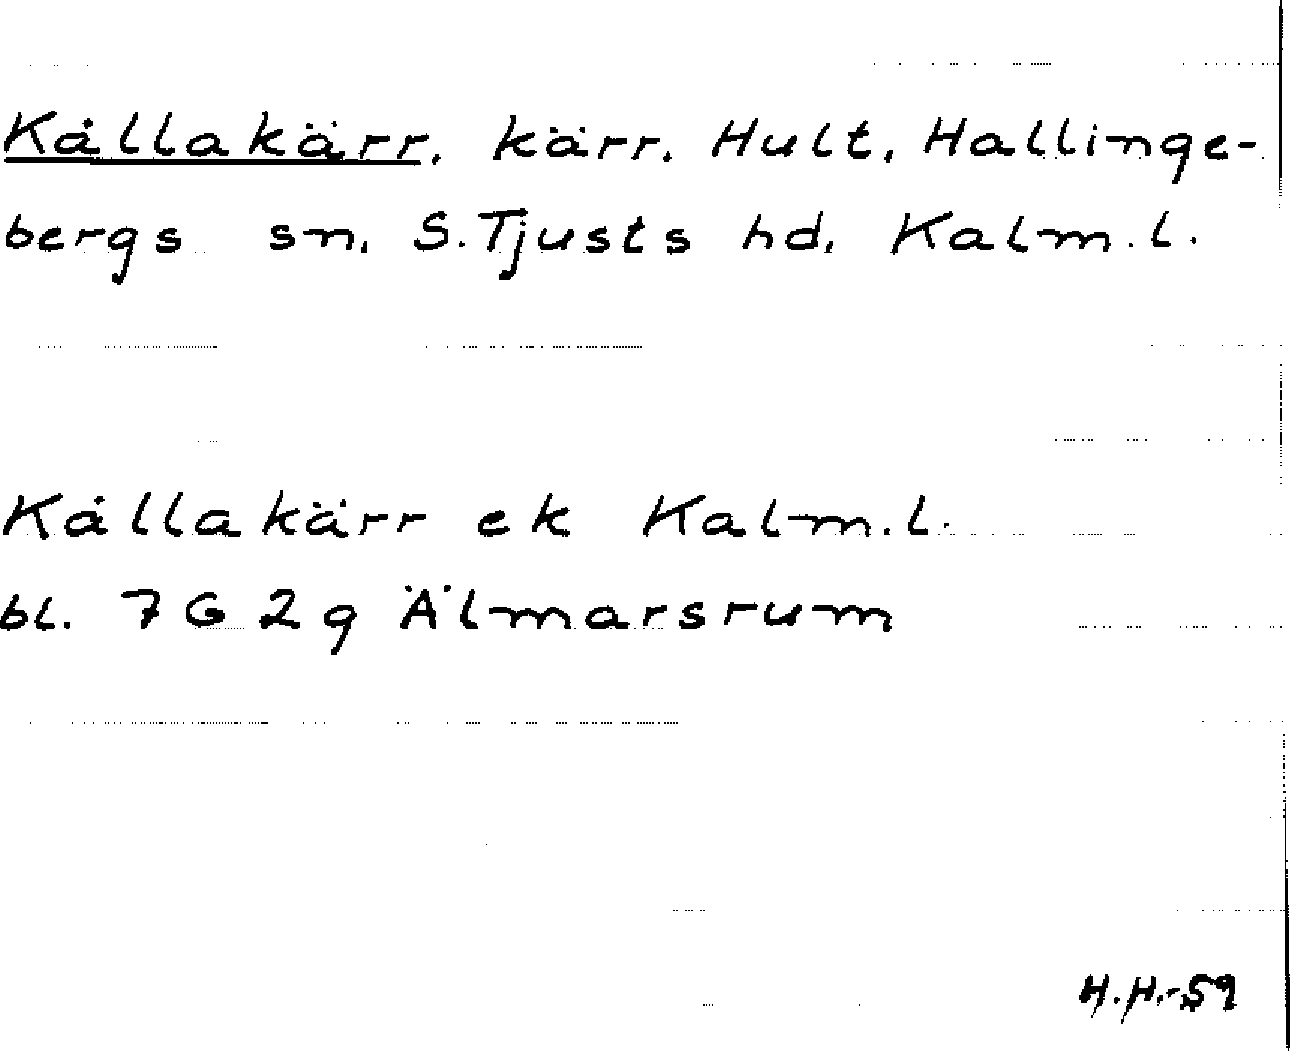 Kållakärr, kärr, Hult, Hallinge-
bergs sn, S. Tjusts hd, Kalm.l.
Kållakärr ek Kalm.l.
bl. 7 G 2 g Älmarsrum
H.H.-59